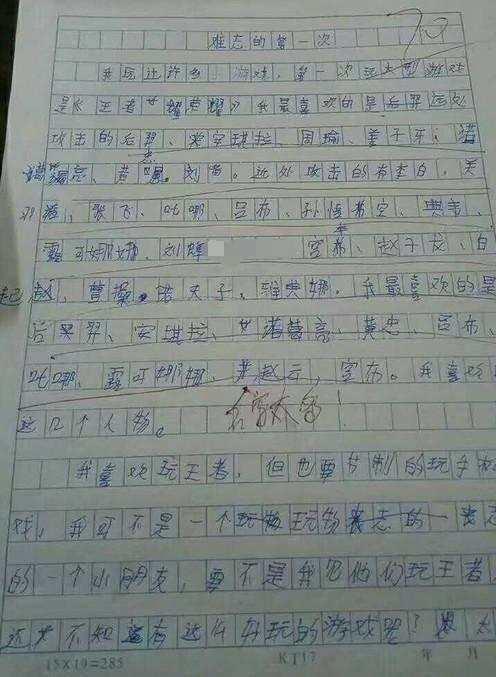 70
难忘的第一次
我玩过许多游戏,第一次玩大型游戏
是《王者荣耀》我最喜欢的是后羿远处
攻击的后羿、安琪拉、周瑜、姜子牙、诸
葛亮、黄忠、刘备。近处攻击的有李白、关
羽、张飞、哪吒、吕布、孙悟空、典韦、
露娜娜、刘禅 宫本、赵子龙、白
起、曹操、老夫子、雅典娜。我最喜欢的是
后羿、安琪拉、诸葛亮、黄忠、吕布、
露娜、赵云、宫本。我喜欢
这几个人物。
名字太多!
我喜欢玩王者,但也要节制的玩手机
戏,我可不是一个玩物丧志的
的一个小朋友,要不是我见他们玩王者,
还不知道有这么好玩的游戏呢?
15×19=285
KT17
年 月